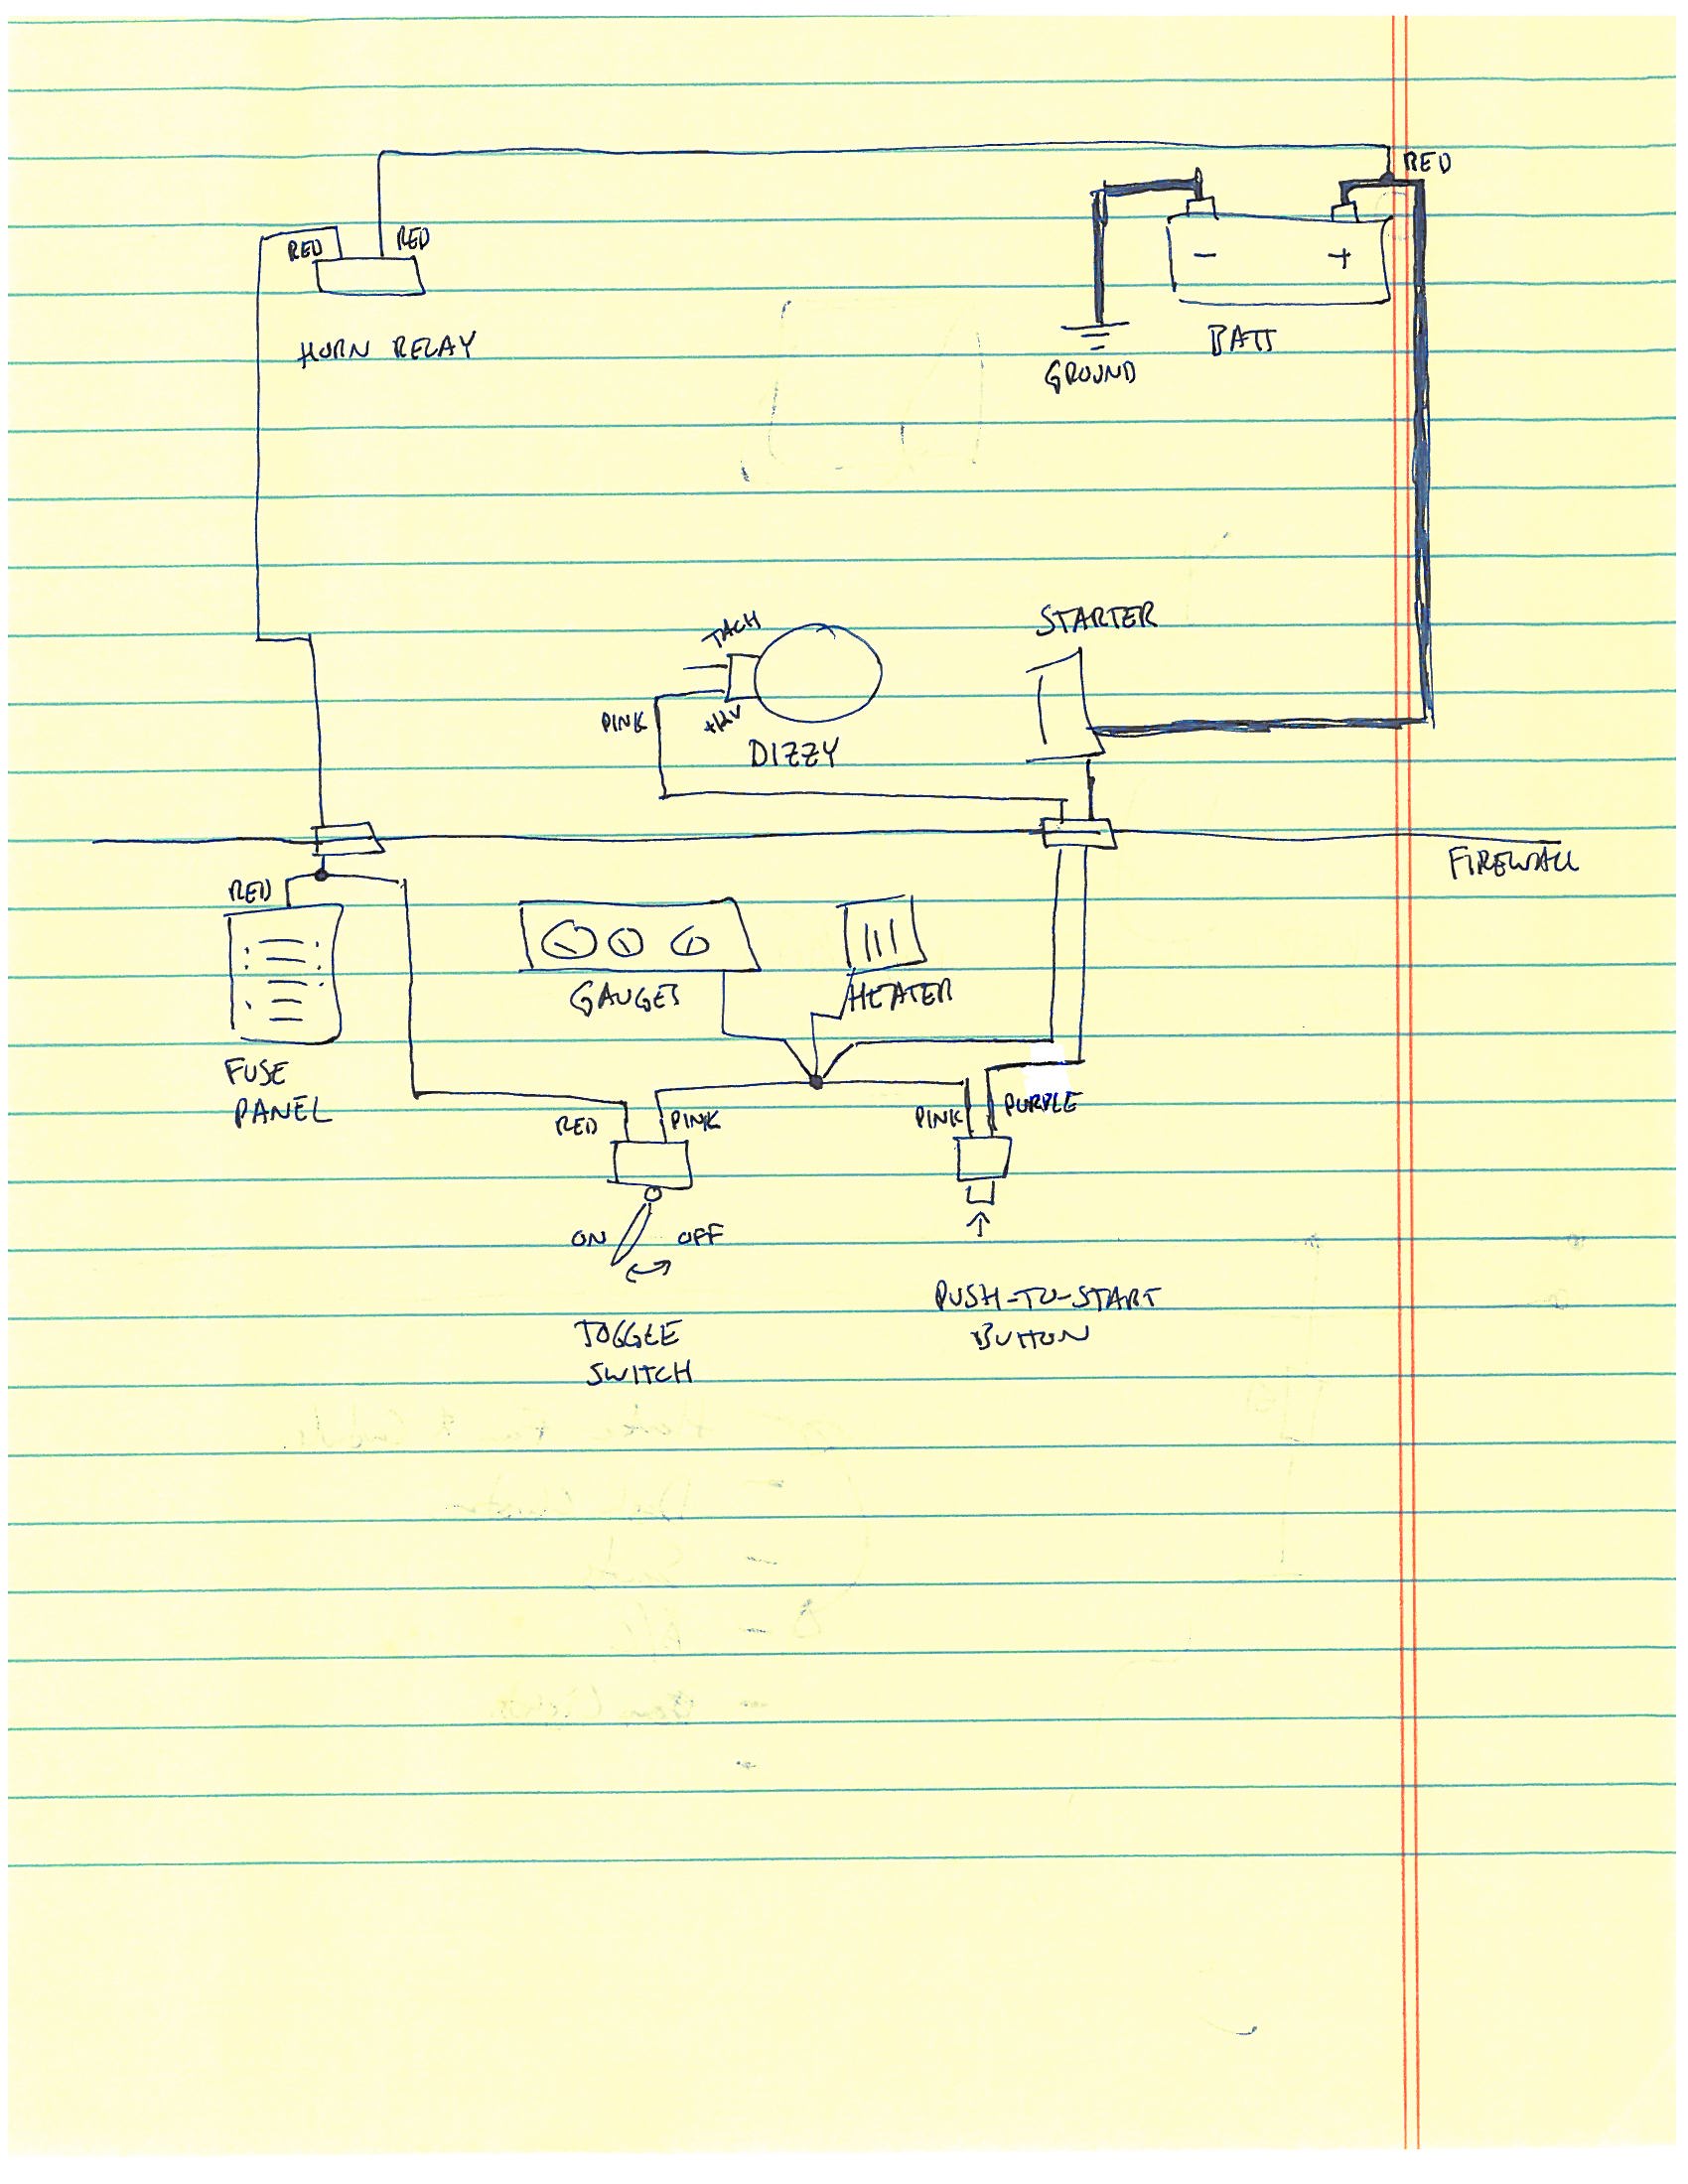 RED
RED
RED
- +
HORN RELAY
BATT
GROUND
STARTER
TACH
PINK
+12V
DIZZY
FIREWALL
RED
GAUGES
HEATER
FUSE
PANEL
RED
PINK
PINK
PURPLE
ON
OFF
PUSH-TO-START
BUTTON
TOGGLE
SWITCH